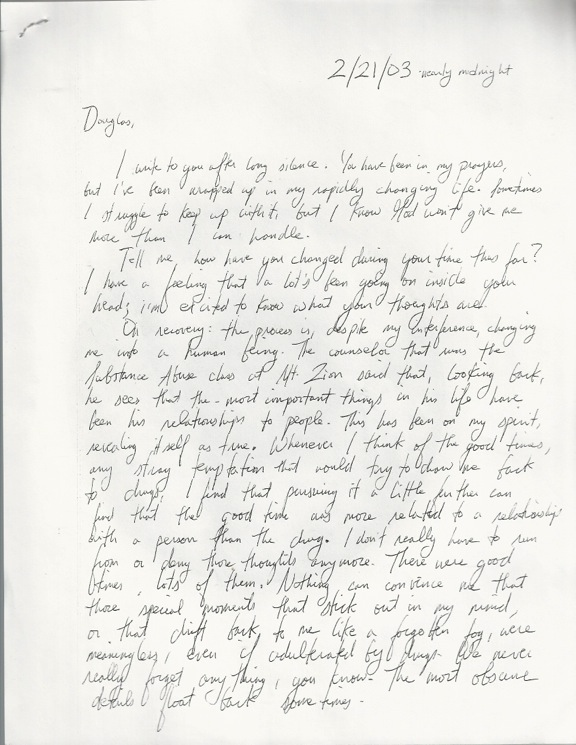 2/21/03 nearly midnight
Douglas,
I write to you after long silence. You have been in my prayers,
but i've been wrapped up in my rapidly changing life. Sometimes
I struggle to keep up with it, but I know God won't give me
more than I can handle.
Tell me, how have you changed during your time thus far?
I have a feeling that a lot's been going on inside your
head; i'm excited to know what your thoughts are.
On recovery: the process is, despite my interference, changing
me into a human being. The counselor that was the
Substance Abuse class at Mt. Zion said that, looking back,
he sees that the most important things in his life have
been his relationships to people. This has been on my spirit,
revealing itself as true. Whenever I think of the good times,
any stray temptation that would try to draw me back
to drugs, I find that pursuing it a little further can
find that the good time was more related to a relationship
with a person than the drug. I don't really have to run
from or deny those thoughts anymore. There were good
times, lots of them. Nothing can convince me that
those special moments that stick out in my mind,
or that drift back to me like a forgotten fog, were
meaningless, even if adulterated by drugs. We never
really forget anything, you know. The most obscure
details float back sometimes.